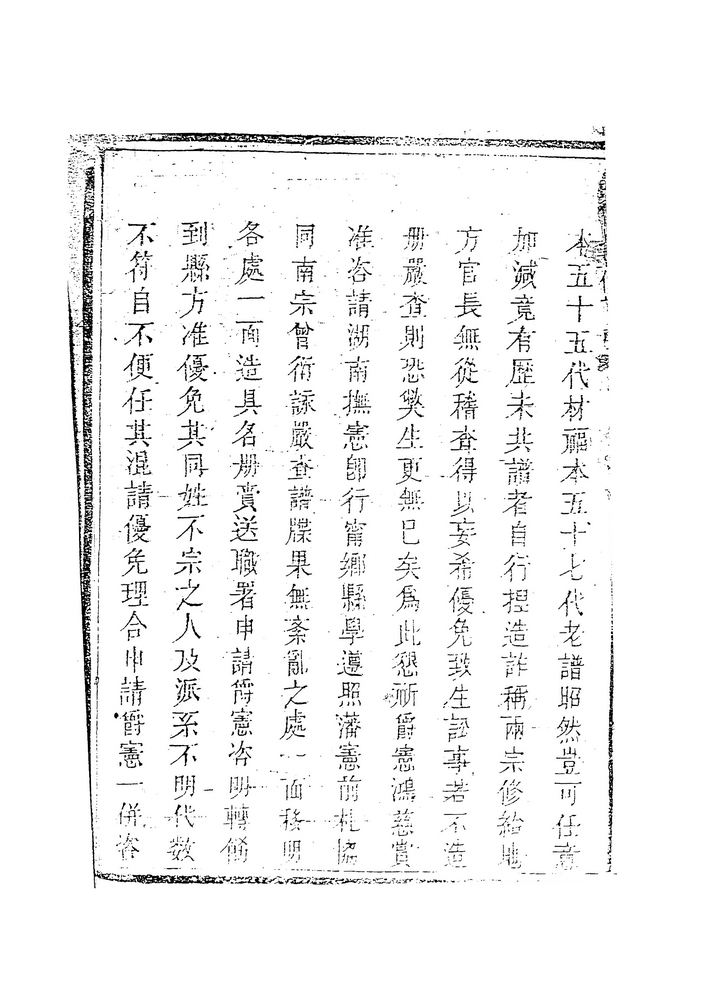 本五十五代材驅本五十七代老譜昭然豈可任意
加減竟有歷未共譜者自行揑造詐稱兩宗修給地
方官長無從稽查得以妄希優免致生訟事若不造
册嚴查則恐獘生更無已矣爲此懇祈爵憲鴻慈賞
准咨請湖南撫憲卽行甯鄉縣學遵照藩憲前札協
同南宗曾衍詠嚴查譜牒果無紊亂之處一面移明
各處一面造具名册賫送職署申請爵憲咨明轉飭
到縣方准優免其同姓不宗之人及派系不明代數
不符自不便任其混請優免理合申請爵憲一併咨